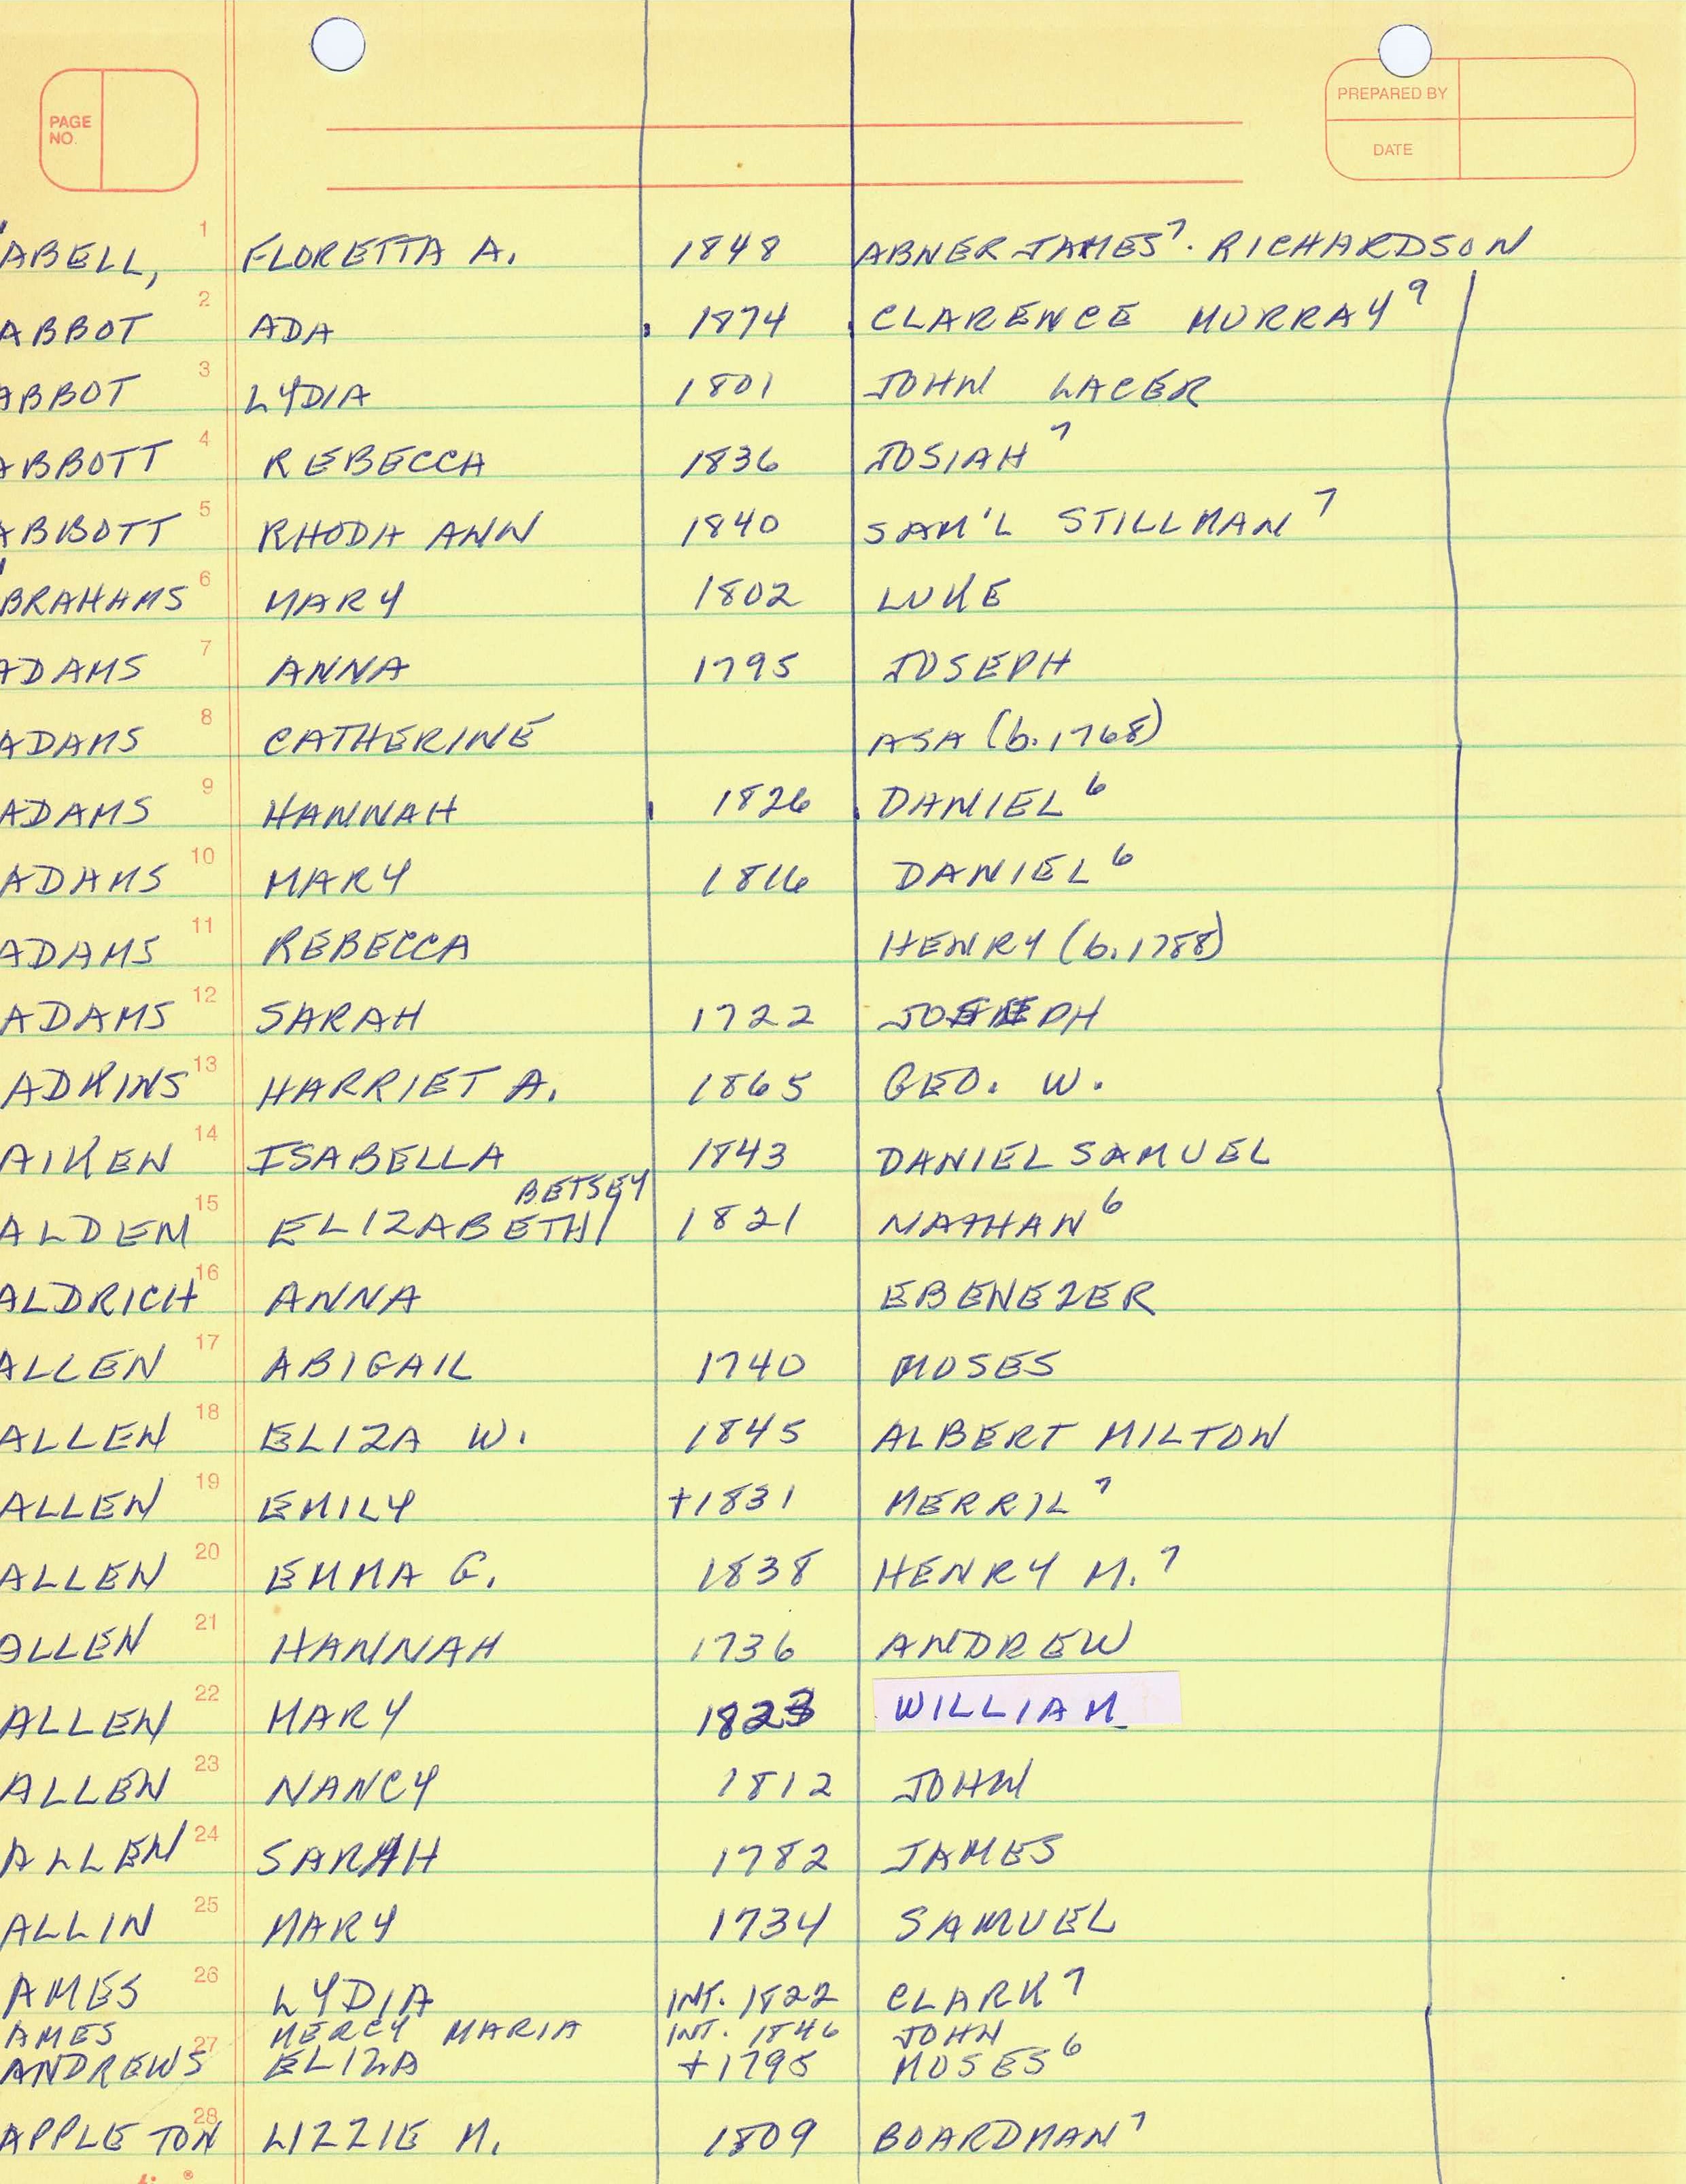 PAGE NO.
PREPARED BY
DATE
1 ABELL, FLORETTA A. 1848 ABNER JAMES⁷. RICHARDSON
2 ABBOT ADA 1874 CLARENCE MURRAY⁹
3 ABBOT LYDIA 1801 JOHN LACER
4 ABBOTT REBECCA 1836 JOSIAH⁷
5 ABBOTT RHODA ANN 1840 SAM'L STILLMAN⁷
6 BRAHAMS MARY 1802 LUKE
7 ADAMS ANNA 1795 JOSEPH
8 ADAMS CATHERINE ASA (b. 1768)
9 ADAMS HANNAH 1826 DANIEL⁶
10 ADAMS MARY 1816 DANIEL⁶
11 ADAMS REBECCA HENRY (b. 1788)
12 ADAMS SARAH 1722 JOSEPH
13 ADKINS HARRIET A. 1865 GEO. W.
14 AIKEN ISABELLA 1843 DANIEL SAMUEL
15 ALDEN ELIZABETH/BETSEY 1821 NATHAN⁶
16 ALDRICH ANNA EBENEZER
17 ALLEN ABIGAIL 1740 MOSES
18 ALLEN ELIZA W. 1845 ALBERT MILTON
19 ALLEN EMILY +1831 MERRIL⁷
20 ALLEN EMMA G. 1838 HENRY M.⁷
21 ALLEN HANNAH 1736 ANDREW
22 ALLEN MARY 1823 WILLIAM
23 ALLEN NANCY 1812 JOHN
24 ALLEN SARAH 1782 JAMES
25 ALLIN MARY 1734 SAMUEL
26 AMES LYDIA INT. 1822 CLARK⁷
AMES MERCY MARIA INT. 1846 JOHN
27 ANDREWS ELIZA +1795 MOSES⁶
28 APPLETON LIZZIE M. 1809 BOARDMAN⁷